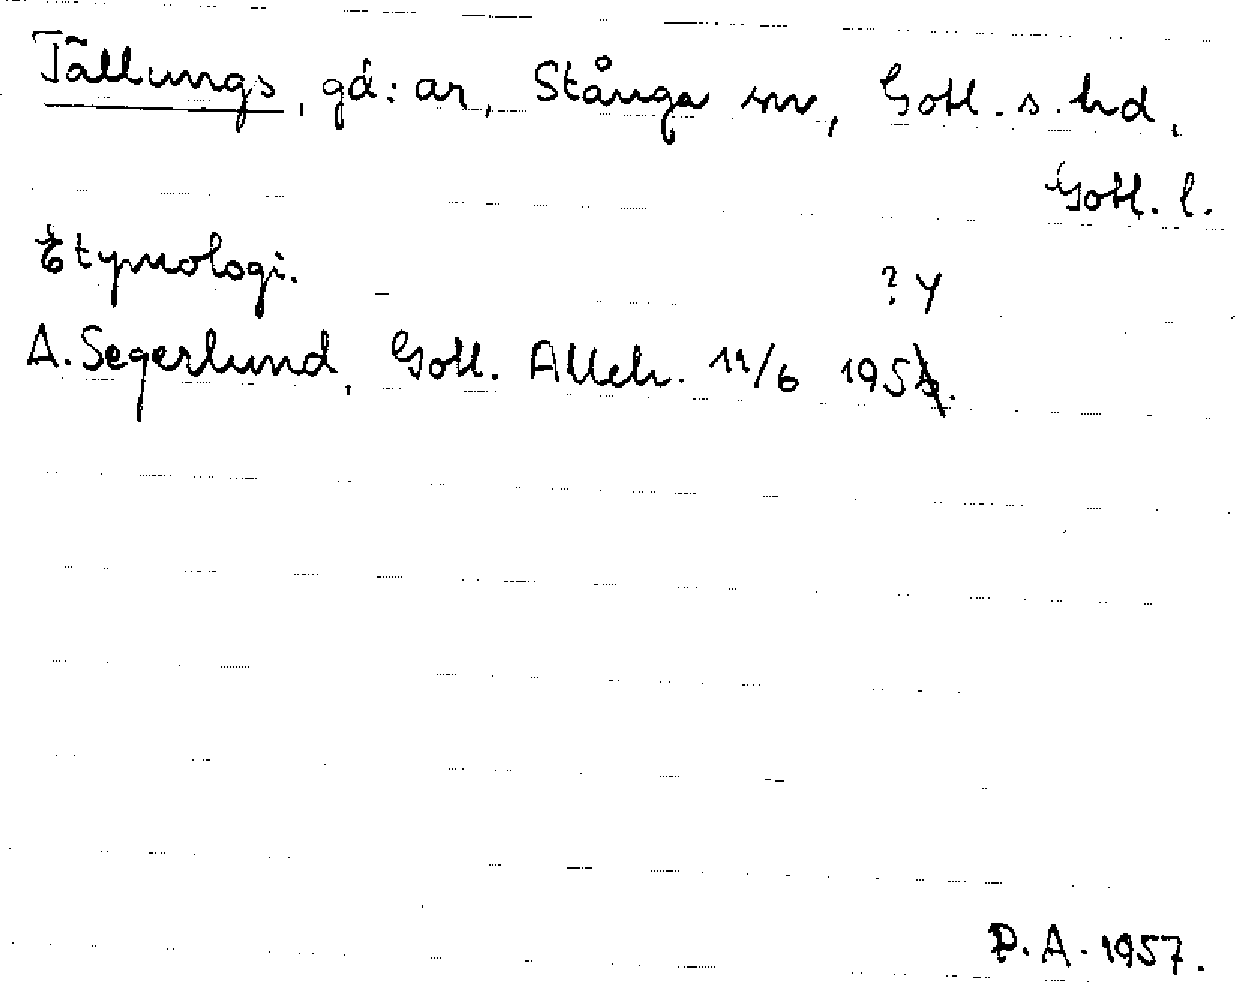 Tällungs, gd:ar, Stånga sn, Gotl. s. hd,
Gotl. l.
Etymologi.
? Y
A. Segerlund, Gotl. Alleh. 11/6 195
D.A. 1957.